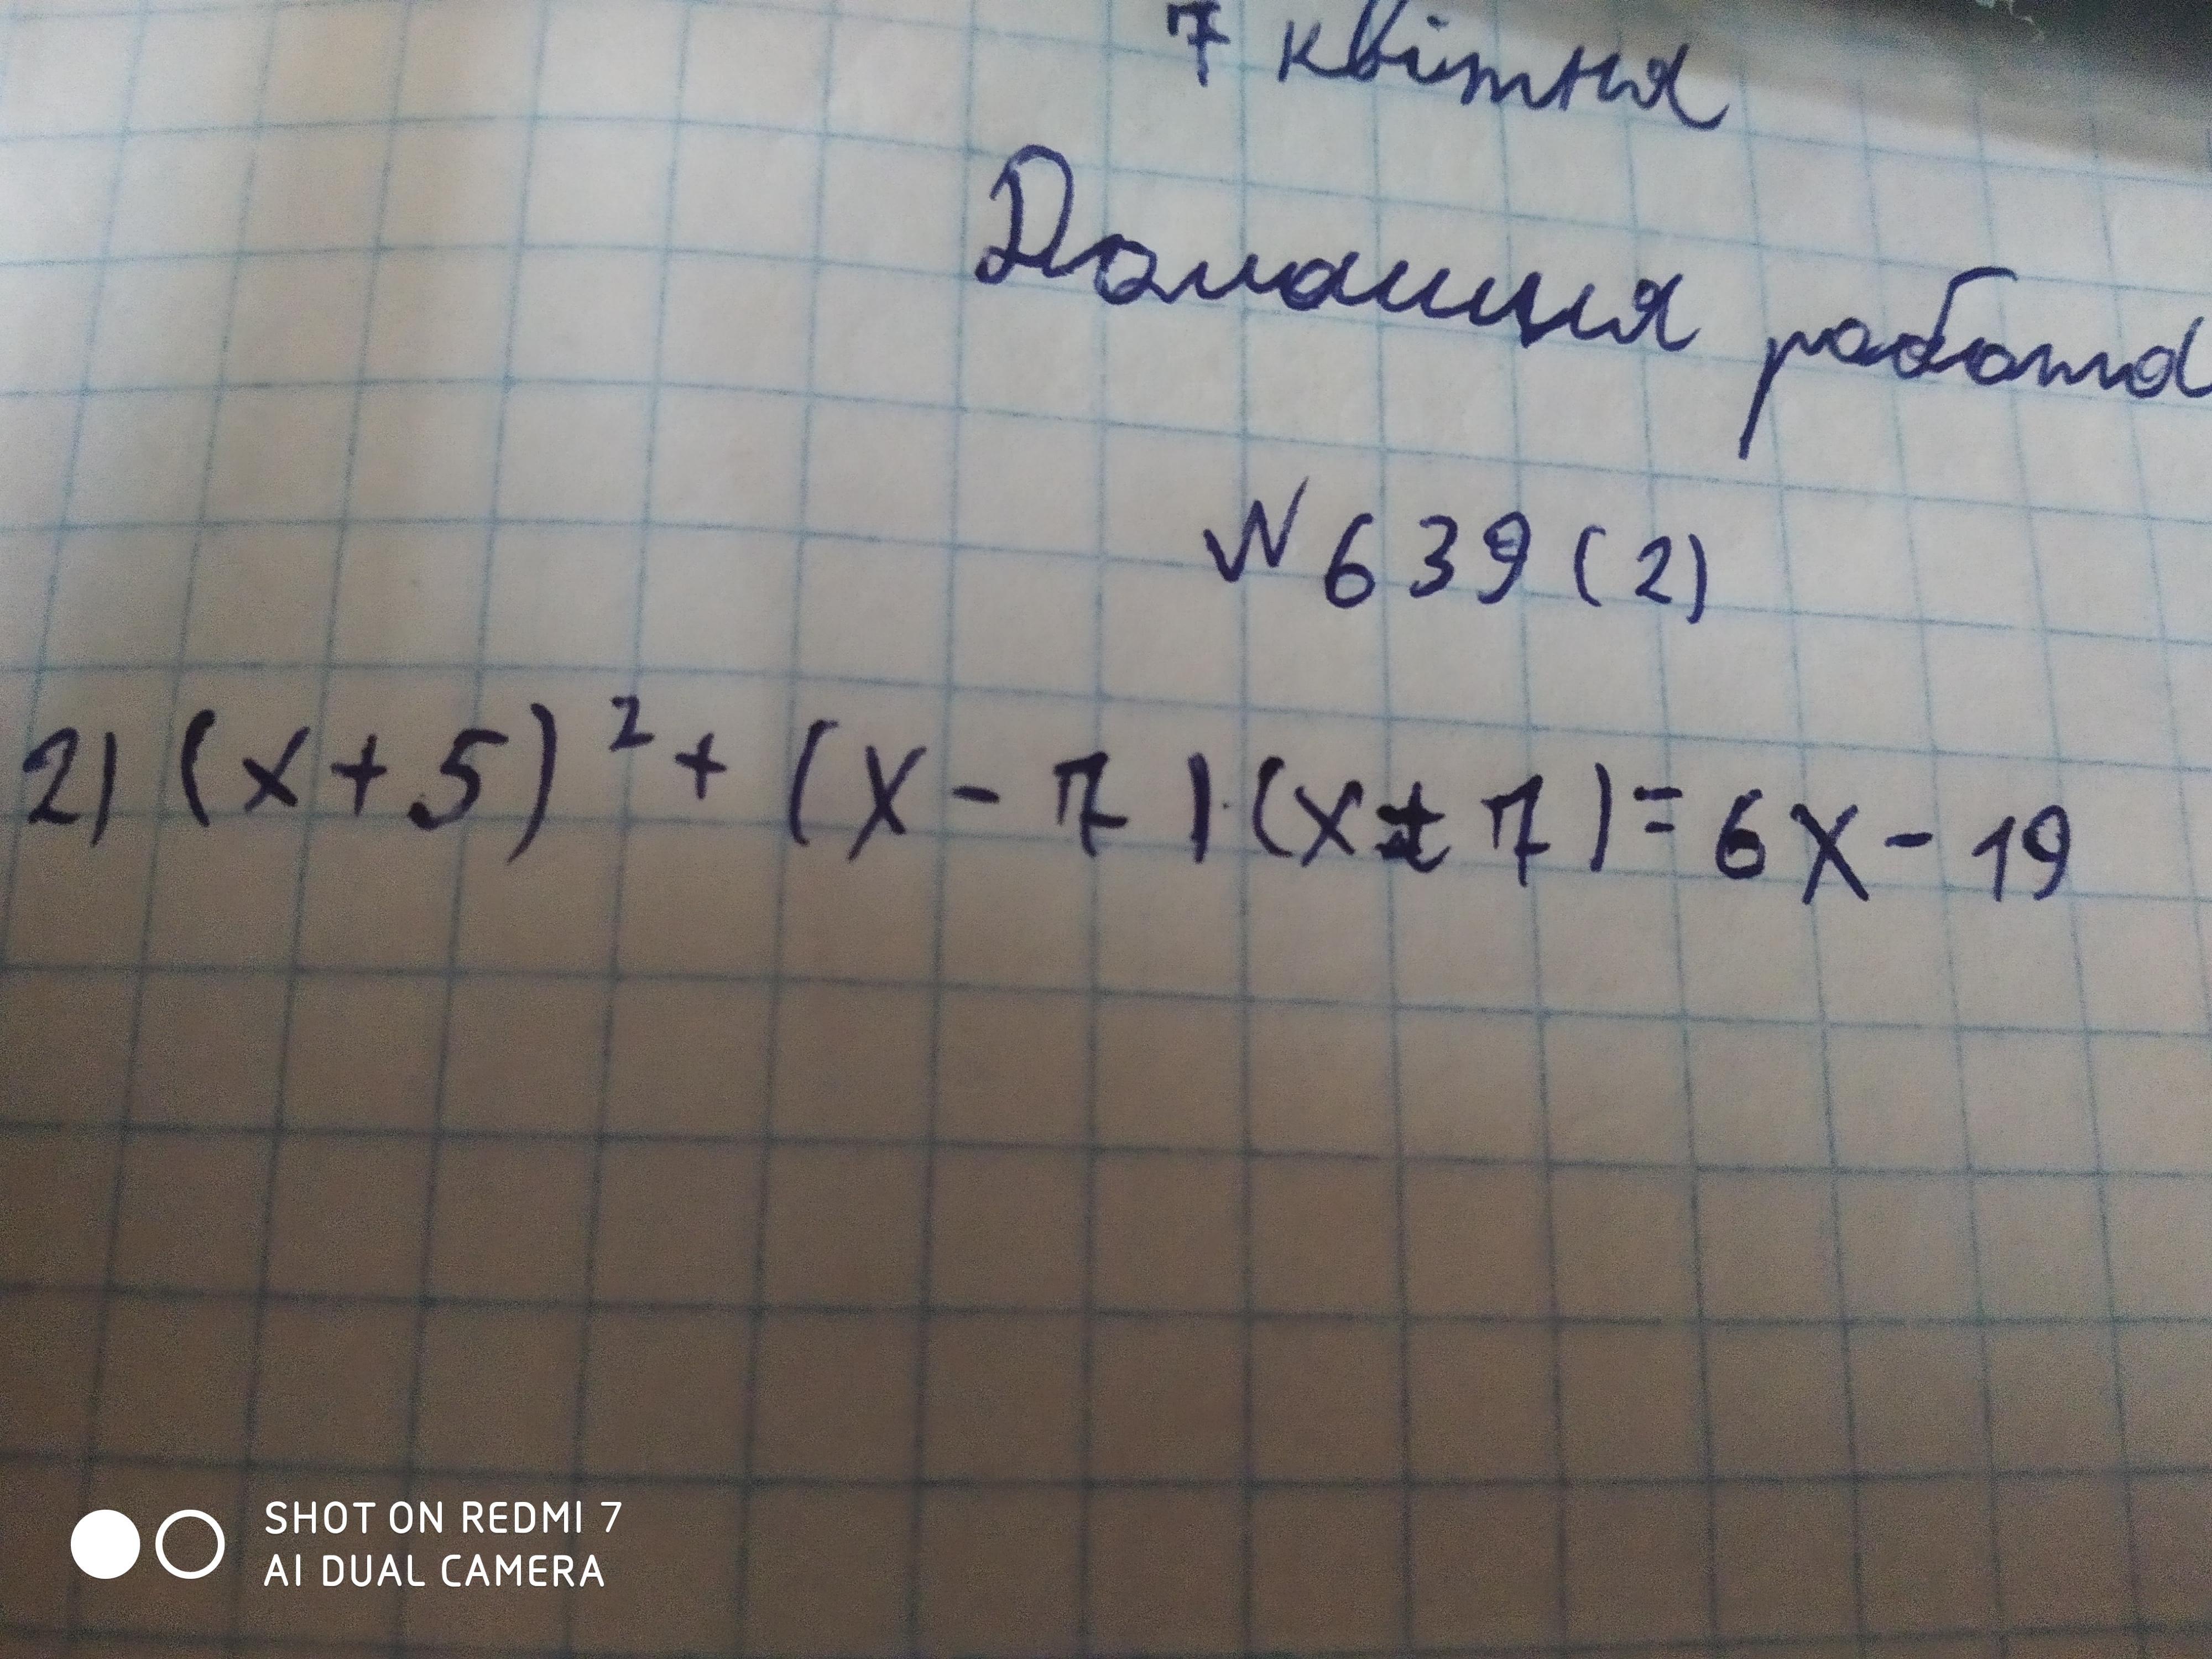 7 квітня
Домашня работа
№639(2)
2) (x+5)²+(x-7)·(x+7)=6x-19
SHOT ON REDMI 7
AI DUAL CAMERA